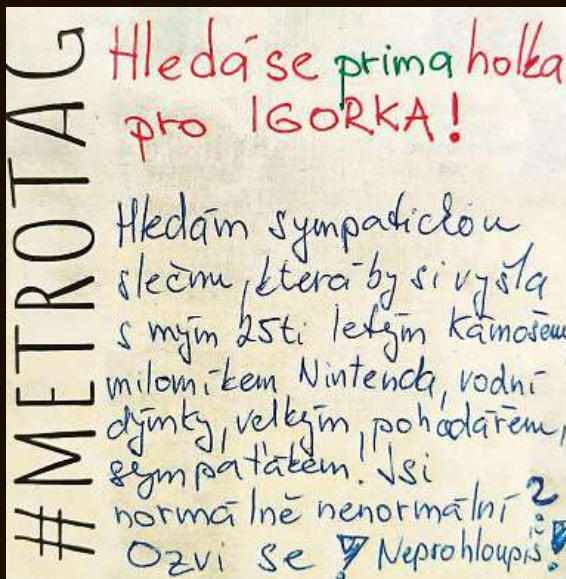 #METROTAG
Hledá se prima holka
pro IGORKA!
Hledám sympatickou
slečnu, která by si vyšla
s mým 25ti letým kámošem,
milovníkem Nintenda, vodní
dýmky, velkým pohodářem,
sympaťákem! Jsi
normálně nenormální?
Ozvi se! Neprohloupíš!